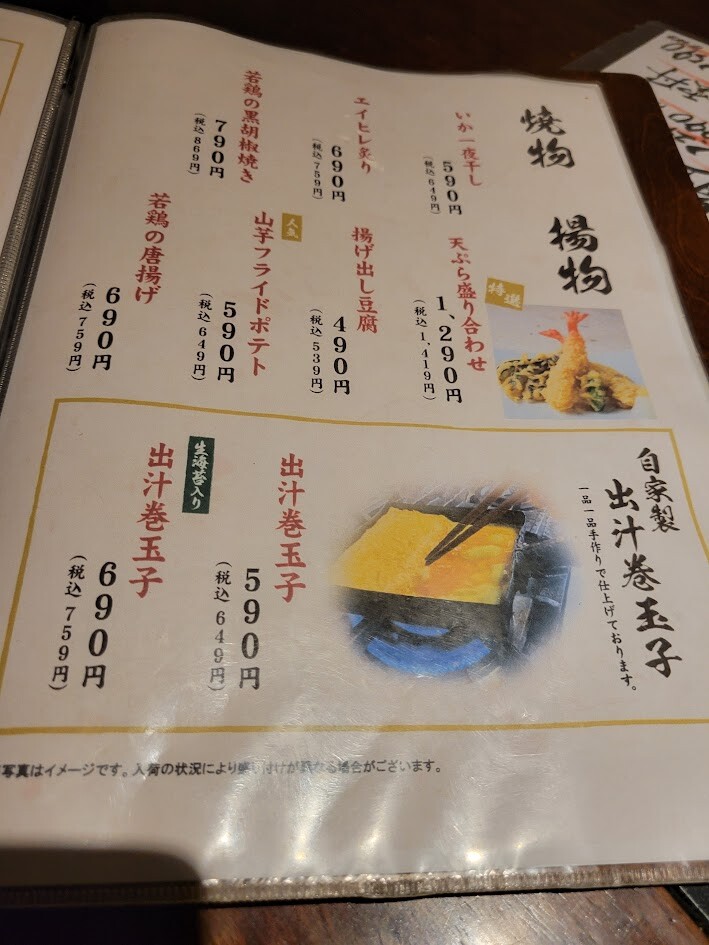 焼物
いか一夜干し
590円
（税込649円）
エイヒレ炙り
690円
（税込759円）
若鶏の黒胡椒焼き
790円
（税込869円）
揚物
特選
天ぷら盛り合わせ
1,290円
（税込1,419円）
揚げ出し豆腐
490円
（税込539円）
人気
山芋フライドポテト
590円
（税込649円）
若鶏の唐揚げ
690円
（税込759円）
自家製
出汁巻玉子
一品一品手作りで仕上げております。
出汁巻玉子
590円
（税込649円）
生海苔入り
出汁巻玉子
690円
（税込759円）
写真はイメージです。入荷の状況により盛り付けが異なる場合がございます。